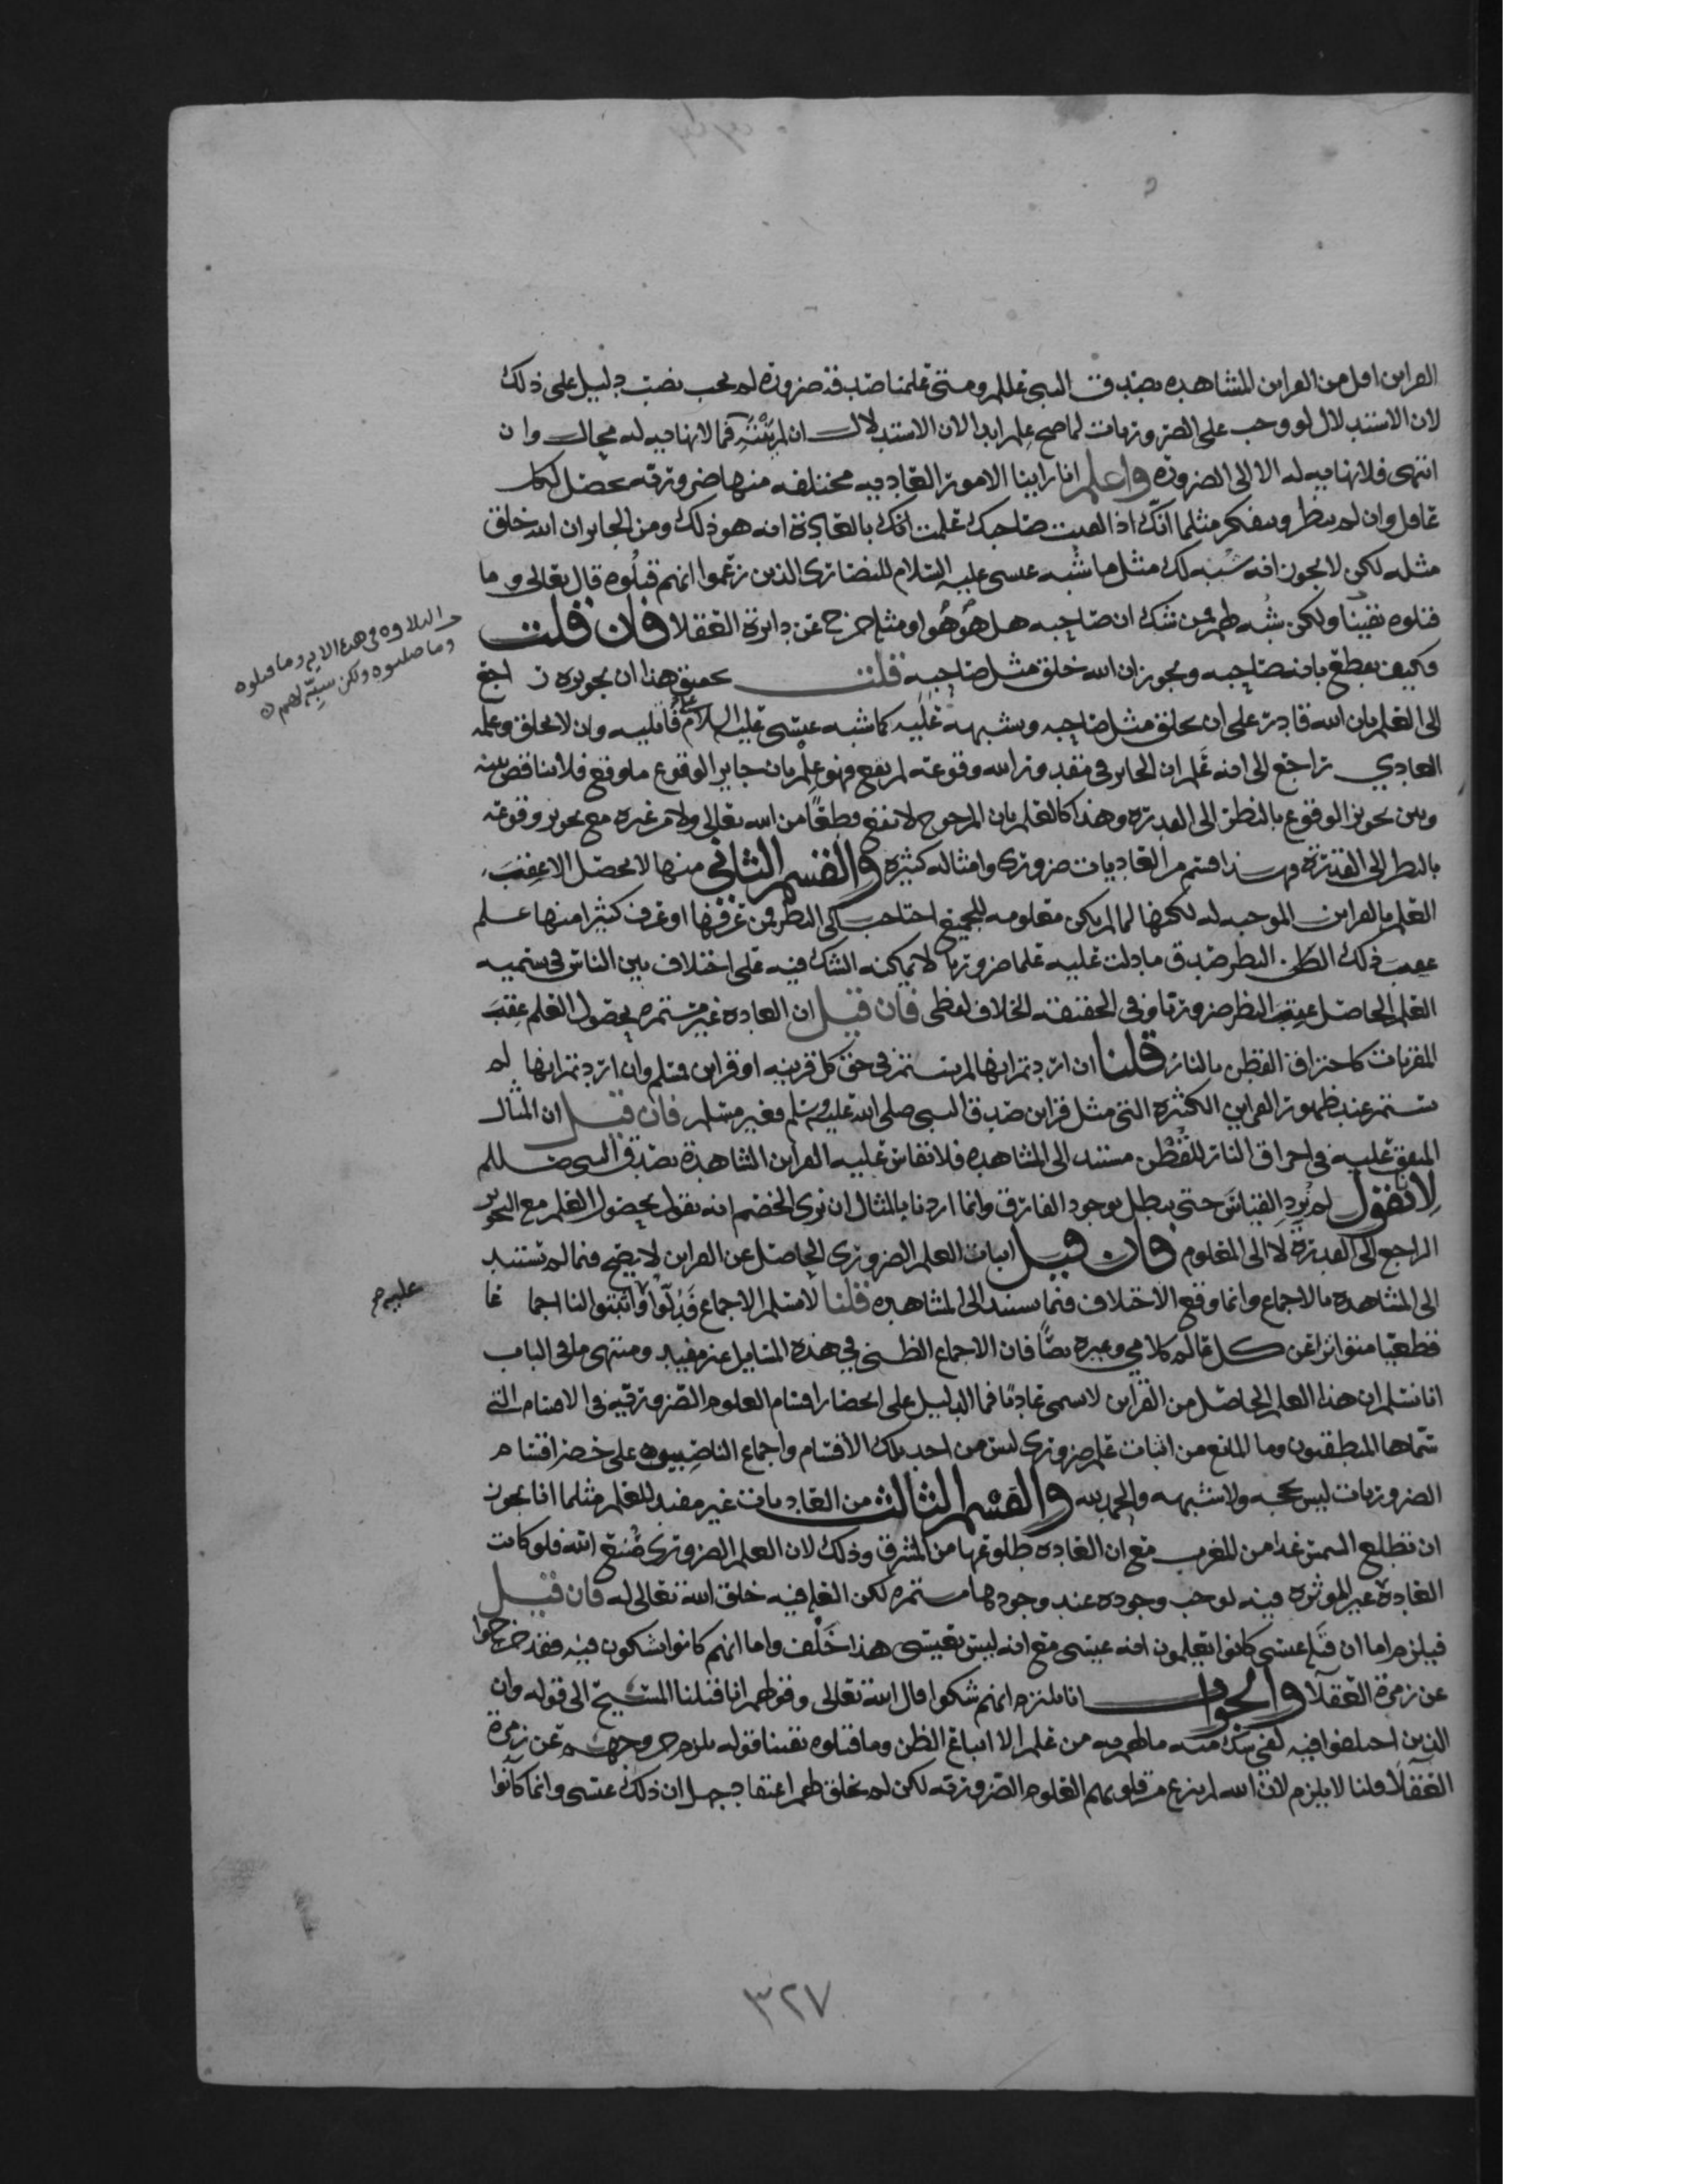 القراين اقل من القراين المشاهده بصدق النبي عللم ومتى علمنا صدقه ضرورة لم يجب نصب دليل على ذلك
لان الاستدلال لو وجب على الضروريات لما صح علم ابدا لان الاستدلال ان لم ينته فما لا نهايه له محال وان
انتهى فلا نهايه له الا الى الضرورة واعلم انا راينا الامور العاديه مختلفه منها ضروريه تحصل لكل
عاقل وان لم ينظر ويتفكر مثلما انك اذا لقيت صاحبك علمت انك بالعادة انه هو ذلك ومن الجايز ان الله خلق
مثله لكن لا يجوز انه شبه لك مثل ما شبه عيسى عليه السلام للنصارى الذين زعموا انهم قتلوه قال تعالى وما
قتلوه يقينا ولكن شبه لهم فمن شك ان صاحبه هل هو هو او مثله خرج عن دايرة العقلا فان قلت
فكيف يقطع بانه صاحبه ويجوز ان الله خلق مثل صاحبه قلت تحقيق هذا ان تجويزه راجع
الى العلم بان الله قادر على ان يخلق مثل صاحبه ويشبهه عليه كما شبه عيسى عليه السلام على قاتليه وان لا يخلق وعلمه
العادي راجع الى انه علم ان الجايز في مقدور الله وقوعه لم يقع فهو علم بان جايز الوقوع ما وقع فلا تناقض بينه
وبين تجويز الوقوع بالنظر الى القدرة وهذا كالعلم بان المرجوح لا يقع قطعًا من الله تعالى ولا من غيره مع تجويز وقوعه
بالنظر الى القدرة فهذا قسم من العاديات ضروري وامثاله كثيره والقسم الثاني منها لا يحصل الا عقيب
العلم بالقراين الموجبه له لكنها لما لم يكن معلومه للجميع احتاجت الى النظر فمن عرفها او عرف كثيرا منها علم
عقيب ذلك النظر صدق ما دلت عليه علما ضروريا لا يمكنه الشك فيه على اختلاف بين الناس في تسميه
العلم الحاصل عقيب النظر ضروريا وفي الحقيقه الخلاف لفظي فان قيل ان العاده غير مستمره بحصول العلم عقيب
المقربات كاحتراق القطن بالنار قلنا ان اردتم انها لم تستمر في حق كل قرينه او قراين فمسلم وان اردتم انها لم
تستمر عند ظهور القراين الكثيره التي مثل قراين صدق النبي صلى الله عليه وسلم فغير مسلم فان قيل ان المثال
المتفق عليه في احراق النار للقطن مستند الى المشاهده فلا تقاس عليه القراين الشاهدة بصدق النبي صللم
لانا نقول لم نرد القياس حتى يبطل بوجود الفارق وانما اردنا بالمثال ان نري الخصم انه يقول بحصول العلم مع التجويز
الراجع الى القدرة لا الى المعلوم فان قيل اثبات العلم الضروري الحاصل عن القراين لا يصح فيما لم تستند
الى المشاهدة بالاجماع وانما وقع الاختلاف فيما يستند الى المشاهده قلنا لا نسلم الاجماع فدلوا عليه م واثبتوا لنا اجماعا
قطعيا متواترا عن كل عالم كلامي وغيره نصًا فان الاجماع الظني في هذه المسايل غير مفيد ومنتهى ما في الباب
انا نسلم ان هذا العلم الحاصل من القراين لا يسمى عاديًا فما الدليل على انحصار اقسام العلوم الضروريه في الاقسام التي
سماها المنطقيون وما المانع من اثبات علم ضروري ليس من احد تلك الاقسام واجماع الناضبيون على حصر اقسام
الضروريات ليس بحجه ولا شبهه والحمد لله والقسم الثالث من العاديات غير مفيد للعلم مثلما انا نجوز
ان تطلع الشمس غدا من المغرب مع ان العاده طلوعها من المشرق وذلك لان العلم الضروري صنع الله فلو كانت
العادة غير الموثره فيه لوجب وجوده عند وجودها مستمره لكن العلم فيه خلق الله تعالى له فان قيل
فيلزم اما ان قتله عيسى كانوا يعلمون انه عيسى مع انه ليس بعيسى هذا خلف واما انهم كانوا يشكون فيه فقد خرجوا
عن زمرة العقلا والجواب انا نلتزم انهم شكوا قال الله تعالى وقولهم انا قتلنا المسيح الى قوله وان
الذين اختلفوا فيه لفي شك منه ما لهم به من علم الا اتباع الظن وما قتلوه يقينا قوله يلزم خروجهم عن زمرة
العقلا قلنا لا يلزم لان الله لم ينزع من قلوبهم العلوم الضروريه لكن لم يخلق لهم اعتقاد جهل ان ذلك عيسى وانما كانوا
التلاوه في هذه الايه وما قتلوه
وما صلبوه ولكن شبه لهم
عليه م
٣٢٧